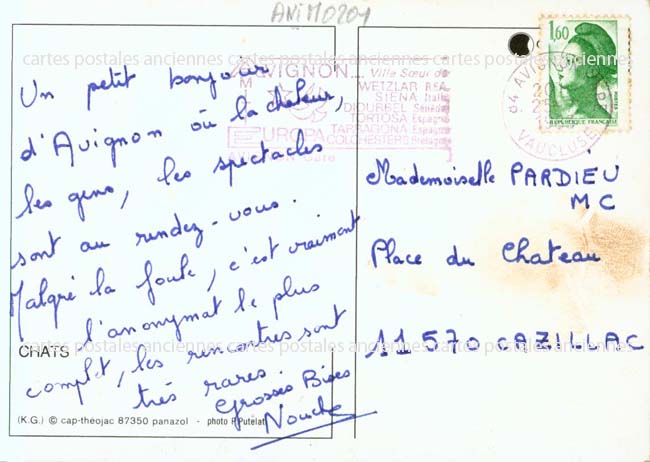 ANIM0201
cartes postales anciennes cartes postales anciennes cartes postales anciennes
1,60
REPUBLIQUE FRANCAISE
84 AVIGNON
VAUCLUSE
AVIGNON...
Ville Sœur de
WETZLAR RFA
SIENA Italie
DIOURBEL Sénégal
TORTOSA Espagne
TARRAGONA Espagne
COLCHESTER G Bretagne
EUROPA
Un petit bonjour
d'Avignon où la chaleur,
les gens, les spectacles
sont au rendez-vous.
Malgré la foule, c'est vraiment
l'anonymat le plus
complet, les rencontres sont
très rares.
Grosses Bises
Nouche
Mademoiselle PARDIEU
MC
Place du Chateau
11 570 CAZILLAC
CHATS
cartes postales anciennes cartes postales anciennes cartes postales anciennes
(K.G.) © cap-théojac 87350 panazol - photo P. Putelat